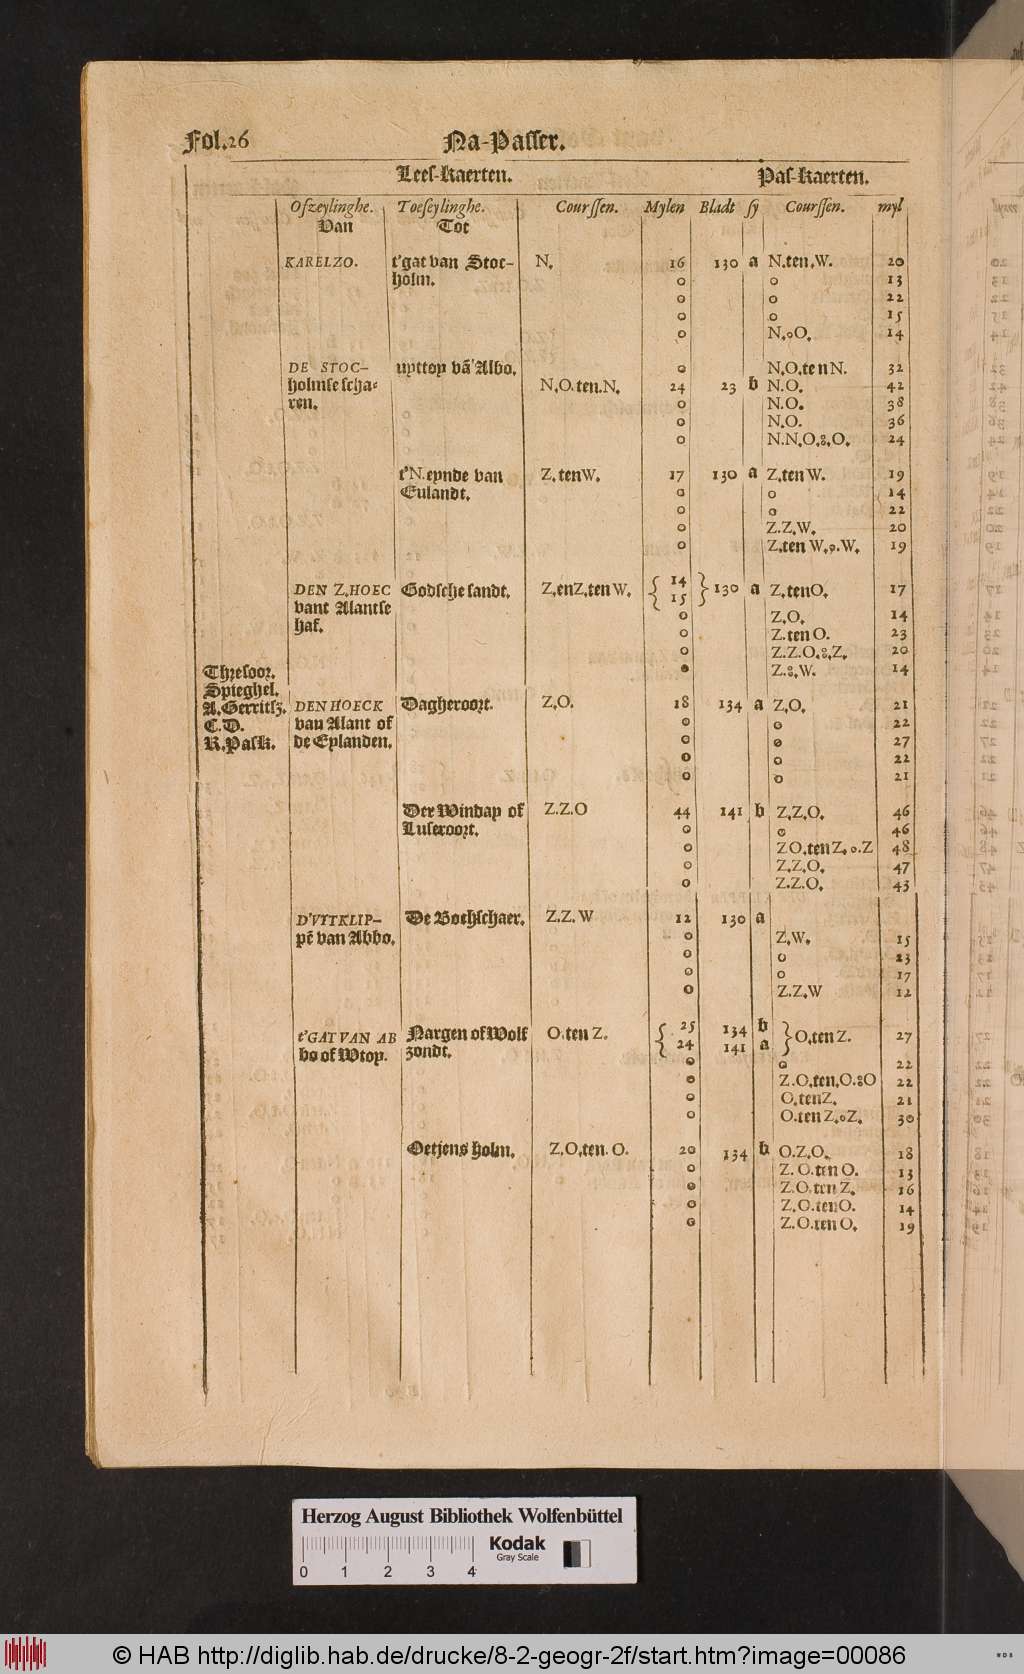 Fol. 26 Na-Passer.
Lees-kaerten. Pas-kaerten.
Ofzeylinghe. Toeseylinghe. Courssen. Mylen Bladt sy Courssen. myl
Van Tot
KARELZO. t'gat van Stoc- N. 16 130 a N.ten.W. 20
holm. o o 13
o o 22
o o 15
o N.oO. 14
DE STOC- upttop vā Albo. o N.O.ten N. 32
holmse scha- N.O.ten.N. 24 23 b N.O. 42
ren. o N.O. 38
o N.O. 36
o N.N.O.8.O. 24
t'N.eynde van Z.tenW. 17 130 a Z.tenW. 19
Eulandt. o o 14
o o 22
o Z.Z.W. 20
o Z.ten W.o.W. 19
DEN Z.HOEC Godsche sandt. Z.enZ.ten W. { 14 } 130 a Z.tenO. 17
vant Alantse 15
haf. o Z.O. 14
o Z.ten O. 23
o Z.Z.O.8.Z. 20
Thresoor. o Z.8.W. 14
Spieghel.
A.Gerritsz. DEN HOECK Dagheroort. Z.O. 18 134 a Z.O. 21
C.D. van Alant of o o 22
R.Pask. de Eylanden. o o 27
o o 22
o o 21
Der Windap of Z.Z.O 44 141 b Z.Z.O. 46
Luseroort. o o 46
o ZO.tenZ.o.Z 48
o Z.Z.O. 47
o Z.Z.O. 43
D'VYTKLIP- De Bochschaer. Z.Z.W 12 130 a
pē van Abbo. o Z.W. 15
o o 23
o o 17
o Z.Z.W 12
t'GAT VAN AB Nargen of Wolf O.ten Z. { 25 134 b } O.ten Z. 27
bo of Wtop. zondt. 24 141 a
o o 22
o Z.O.ten.O.8O 22
o O.tenZ. 21
o O.ten Z.oZ. 30
Oetjens holm. Z.O.ten.O. 20 134 b O.Z.O. 18
o Z.O.ten O. 13
o Z.O.ten Z. 16
o Z.O.tenO. 14
o Z.O.ten O. 19
Herzog August Bibliothek Wolfenbüttel
Kodak
Gray Scale
0 1 2 3 4
© HAB http://diglib.hab.de/drucke/8-2-geogr-2f/start.htm?image=00086